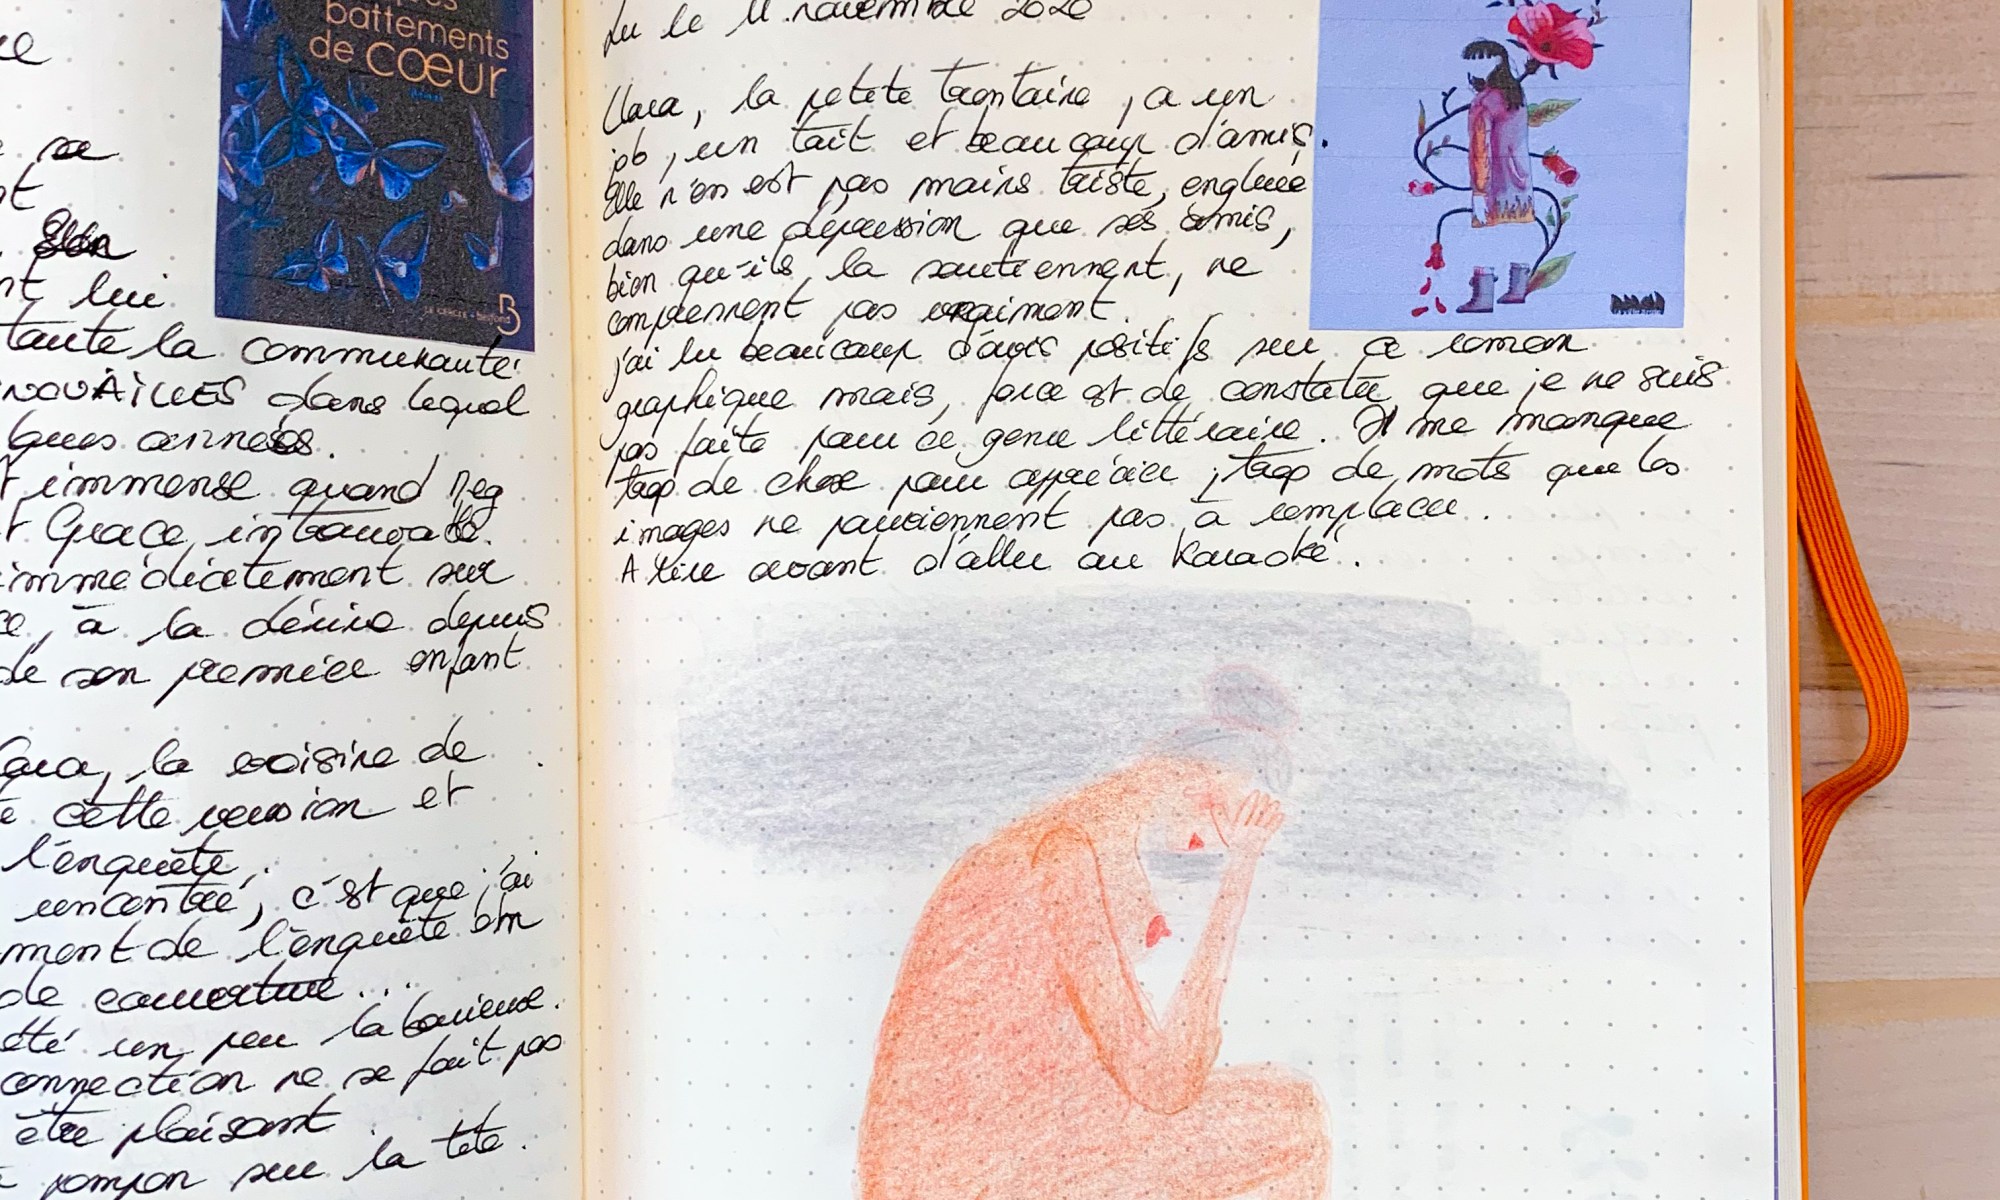 battements
de cœur
LE CERCLE - belfond
sa
lui
toute la communauté
NOUAILLES dans lequel
ques années.
immense quand Meg
Grace, introuvable.
immédiatement sur
à la dérive depuis
de son premier enfant
la voisine de
cette version et
l'enquête.
rencontré, c'est que j'ai
ment de l'enquête em
de couverture...
été un peu laborieuse.
connection ne se fait pas
être plaisant.
pompon sur la tête.
Lu le 11 novembre 2020
Clara, la petite trentaine, a un
job, un toit et beaucoup d'amis.
Elle n'en est pas moins triste, engluée
dans une dépression que ses amis,
bien qu'ils la soutiennent, ne
comprennent pas vraiment.
j'ai lu beaucoup d'avis positifs sur ce roman
graphique mais, force est de constater que je ne suis
pas faite pour ce genre littéraire. Il me manque
trop de chose pour apprécier, trop de mots que les
images ne parviennent pas à remplacer.
A lire avant d'aller au Karaoké.